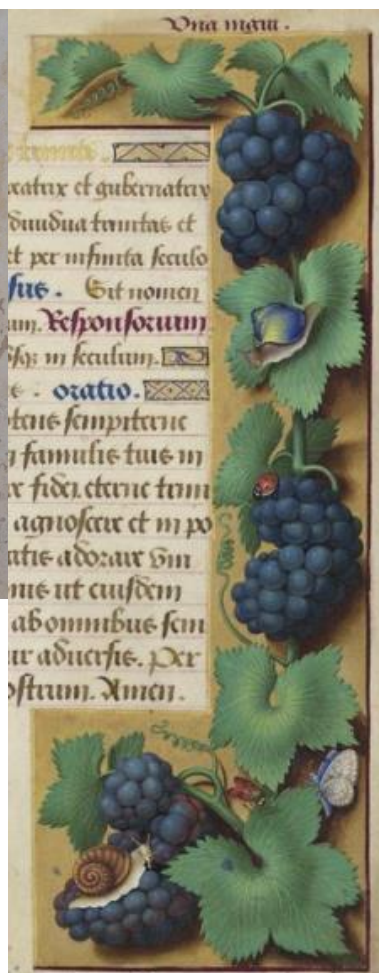 Vna magni.
eatrix et gubernatrix
diuidua trinitas et
et per infinita secula
sus. Sit nomen
um. Responsorium
sq; in seculum.
oratio.
otens sempiterne
famulis tuis in
e fidei eterne trini
agnoscere et in po
atis adorare vni
mus ut eiusdem
ab omnibus sem
ur aduersis. Per
ostrum. Amen.